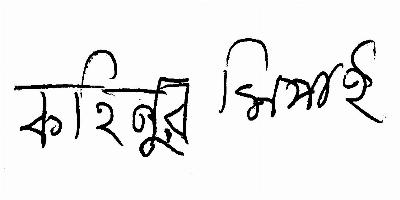 কহিনুর মিয়াই